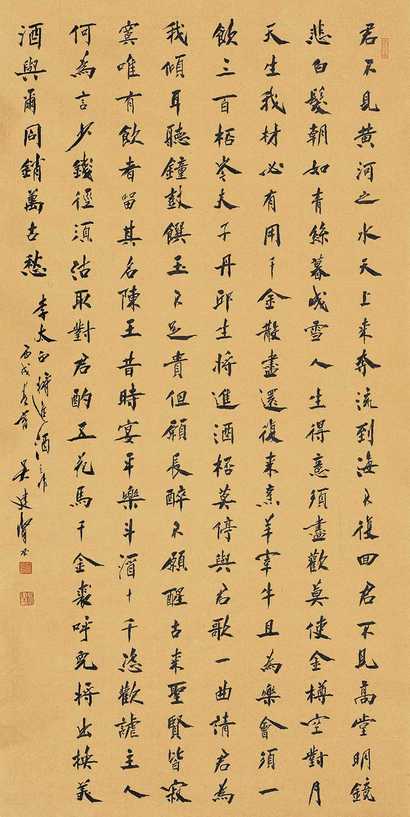 君不見黃河之水天上來奔流到海不復回君不見高堂明鏡
悲白髮朝如青絲暮成雪人生得意須盡歡莫使金樽空對月
天生我材必有用千金散盡還復來烹羊宰牛且為樂會須一
飲三百杯岑夫子丹邱生將進酒杯莫停與君歌一曲請君為
我傾耳聽鐘鼓饌玉不足貴但願長醉不願醒古來聖賢皆寂
寞唯有飲者留其名陳王昔時宴平樂斗酒十千恣歡謔主人
何為言少錢徑須沽取對君酌五花馬千金裘呼兒將出換美
酒與爾同銷萬古愁
李太白將進酒
丙戌